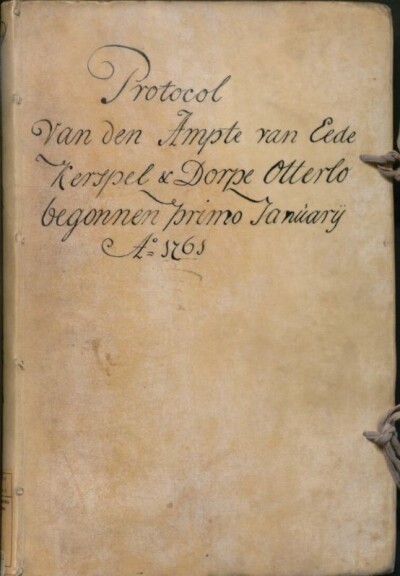 Protocol
Van den Ampte van Eede
Kerspel & Dorpe Otterlo
begonnen primo Janúarÿ
A:º 1761